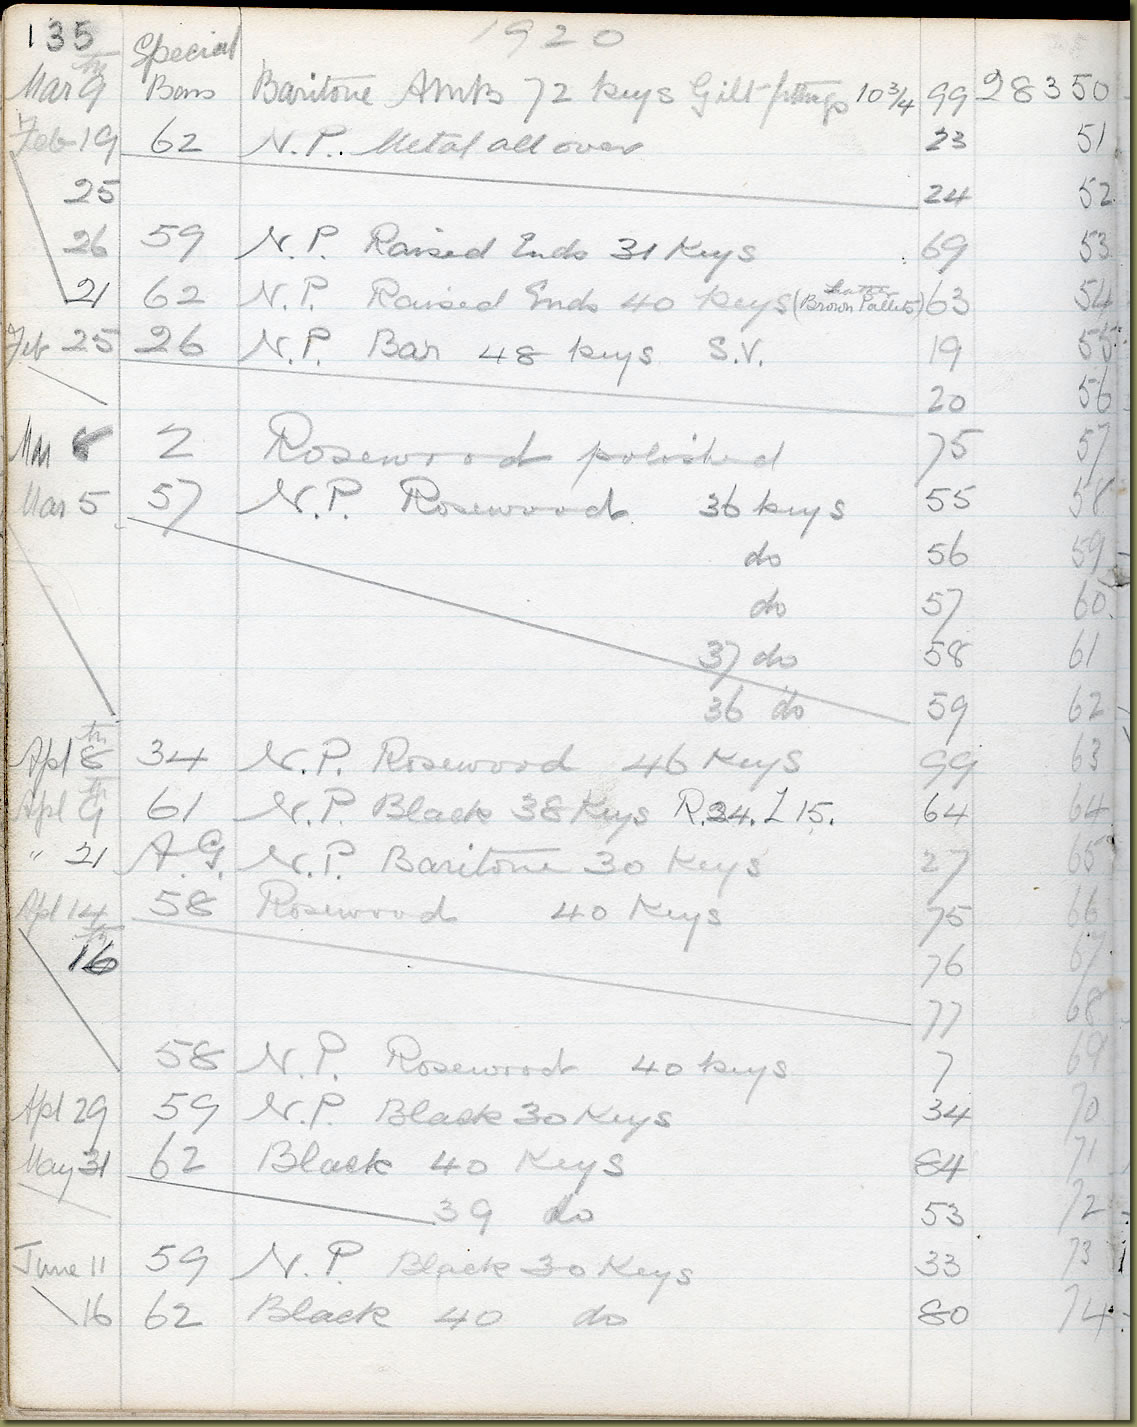 135 Special 1920
Mar 9th Bass Baritone AMB 72 keys Gilt-fittings 10 3/4 99 28350
Feb 19 62 N.P. Metal all over 23 51
25 24 52
26 59 N.P. Raised Ends 31 Keys 69 53
21 62 N.P. Raised Ends 40 Keys (Brown Pallets) 63 54
Feb 25 26 N.P. Bar 48 keys S.V. 19 55
20 56
Mar 8 2 Rosewood polished 75 57
Mar 5 57 N.P. Rosewood 36 keys 55 58
do 56 59
do 57 60
37 do 58 61
36 do 59 62
Apl 8th 34 N.P. Rosewood 46 Keys 99 63
Apl 9th 61 N.P. Black 38 Keys R.24. L 15. 64 64
" 21 A.G. N.P. Baritone 30 Keys 27 65
Apl 14 58 Rosewood 40 Keys 75 66
16th 76 67
77 68
58 N.P. Rosewood 40 keys 7 69
Apl 29 59 N.P. Black 30 Keys 34 70
May 31 62 Black 40 Keys 84 71
39 do 53 72
June 11 59 N.P. Black 30 Keys 33 73
16 62 Black 40 do 80 74